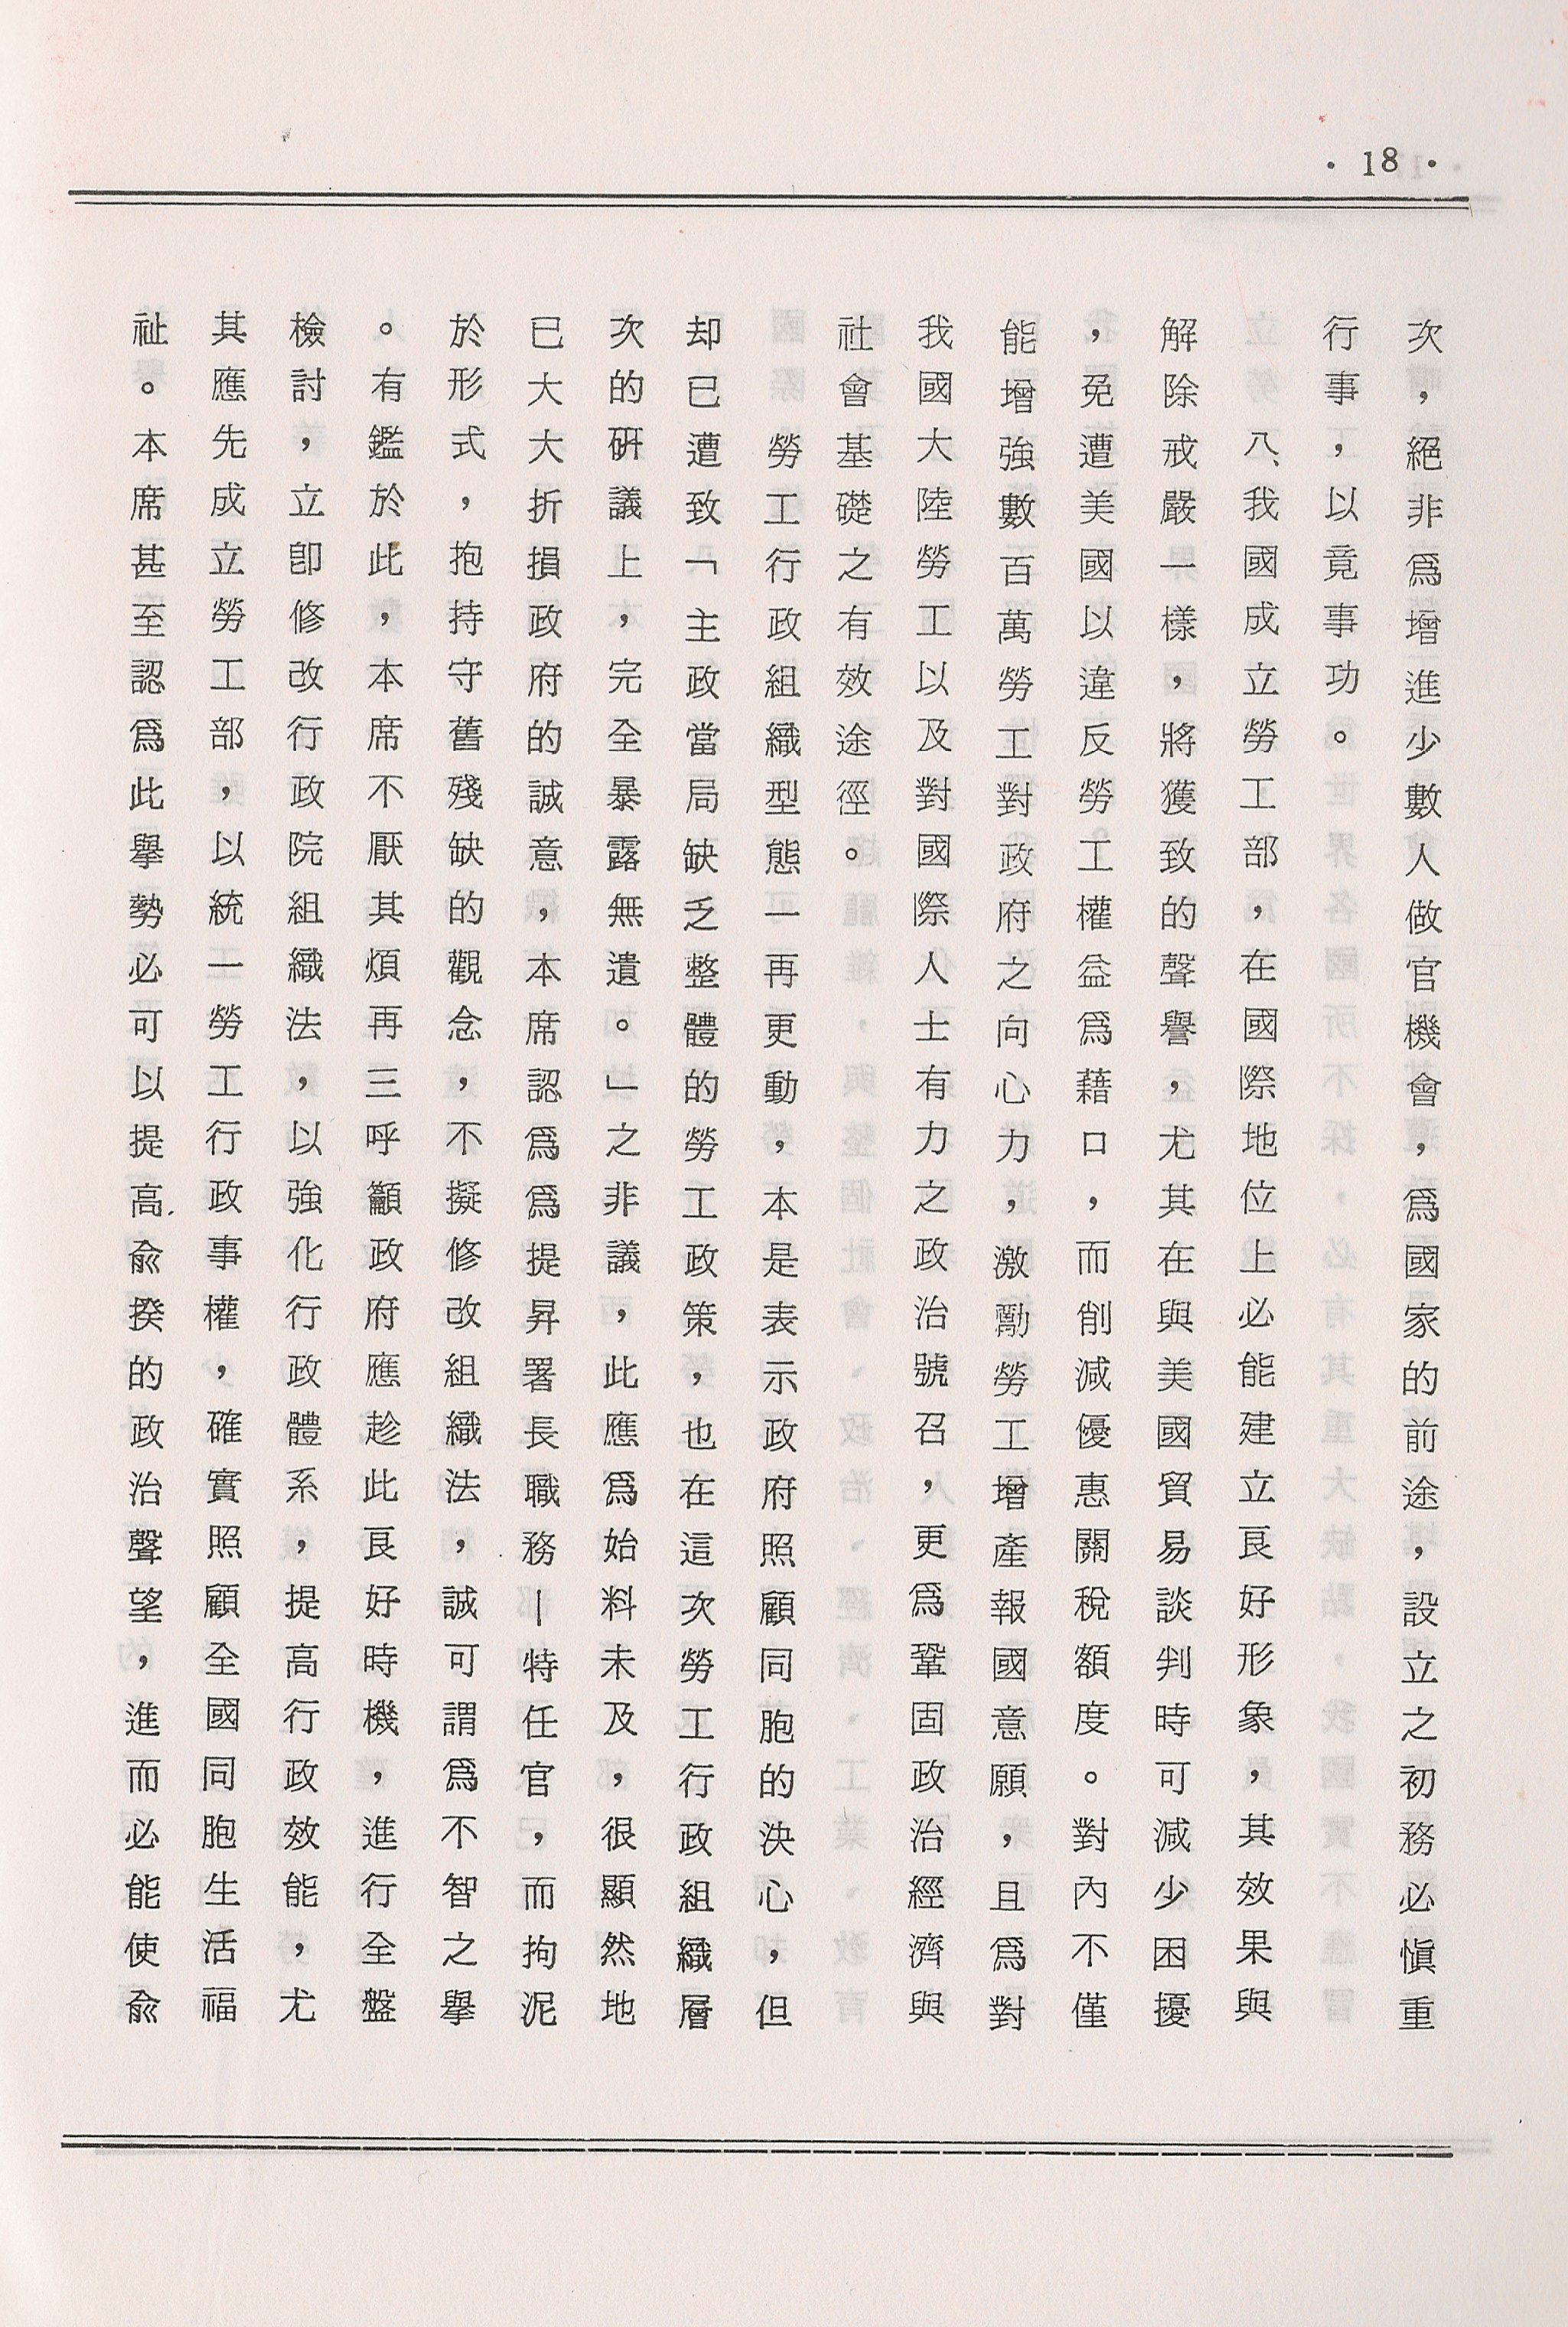 • 18 •
次，絕非為增進少數人做官機會，為國家的前途，設立之初務必愼重
行事，以竟事功。
八、我國成立勞工部，在國際地位上必能建立良好形象，其效果與
解除戒嚴一樣，將獲致的聲譽，尤其在與美國貿易談判時可減少困擾
，免遭美國以違反勞工權益為藉口，而削減優惠關稅額度。對內不僅
能增強數百萬勞工對政府之向心力，激勵勞工增產報國意願，且為對
我國大陸勞工以及對國際人士有力之政治號召，更為鞏固政治經濟與
社會基礎之有效途徑。
勞工行政組織型態一再更動，本是表示政府照顧同胞的決心，但
却已遭致「主政當局缺乏整體的勞工政策，也在這次勞工行政組織層
次的研議上，完全暴露無遺。」之非議，此應為始料未及，很顯然地
已大大折損政府的誠意，本席認為為提昇署長職務—特任官，而拘泥
於形式，抱持守舊殘缺的觀念，不擬修改組織法，誠可謂為不智之舉
。有鑑於此，本席不厭其煩再三呼籲政府應趁此良好時機，進行全盤
檢討，立卽修改行政院組織法，以強化行政體系，提高行政效能，尤
其應先成立勞工部，以統一勞工行政事權，確實照顧全國同胞生活福
祉。本席甚至認為此舉勢必可以提高俞揆的政治聲望，進而必能使俞